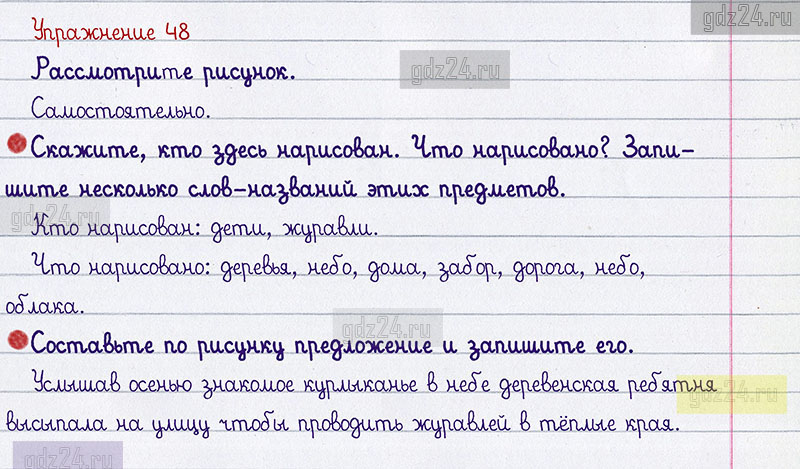 gdz24.ru
Упражнение 48
Рассмотрите рисунок.
gdz24.ru
Самостоятельно.
Скажите, кто здесь нарисован. Что нарисовано? Запи-
шите несколько слов-названий этих предметов.
gdz24.ru
Кто нарисован: дети, журавли.
Что нарисовано: деревья, небо, дома, забор, дорога, небо,
облака.
gdz24.ru
Составьте по рисунку предложение и запишите его.
Услышав осенью знакомое курлыканье в небе деревенская ребятня
gdz24.ru
высыпала на улицу чтобы проводить журавлей в тёплые края.
gdz24.ru